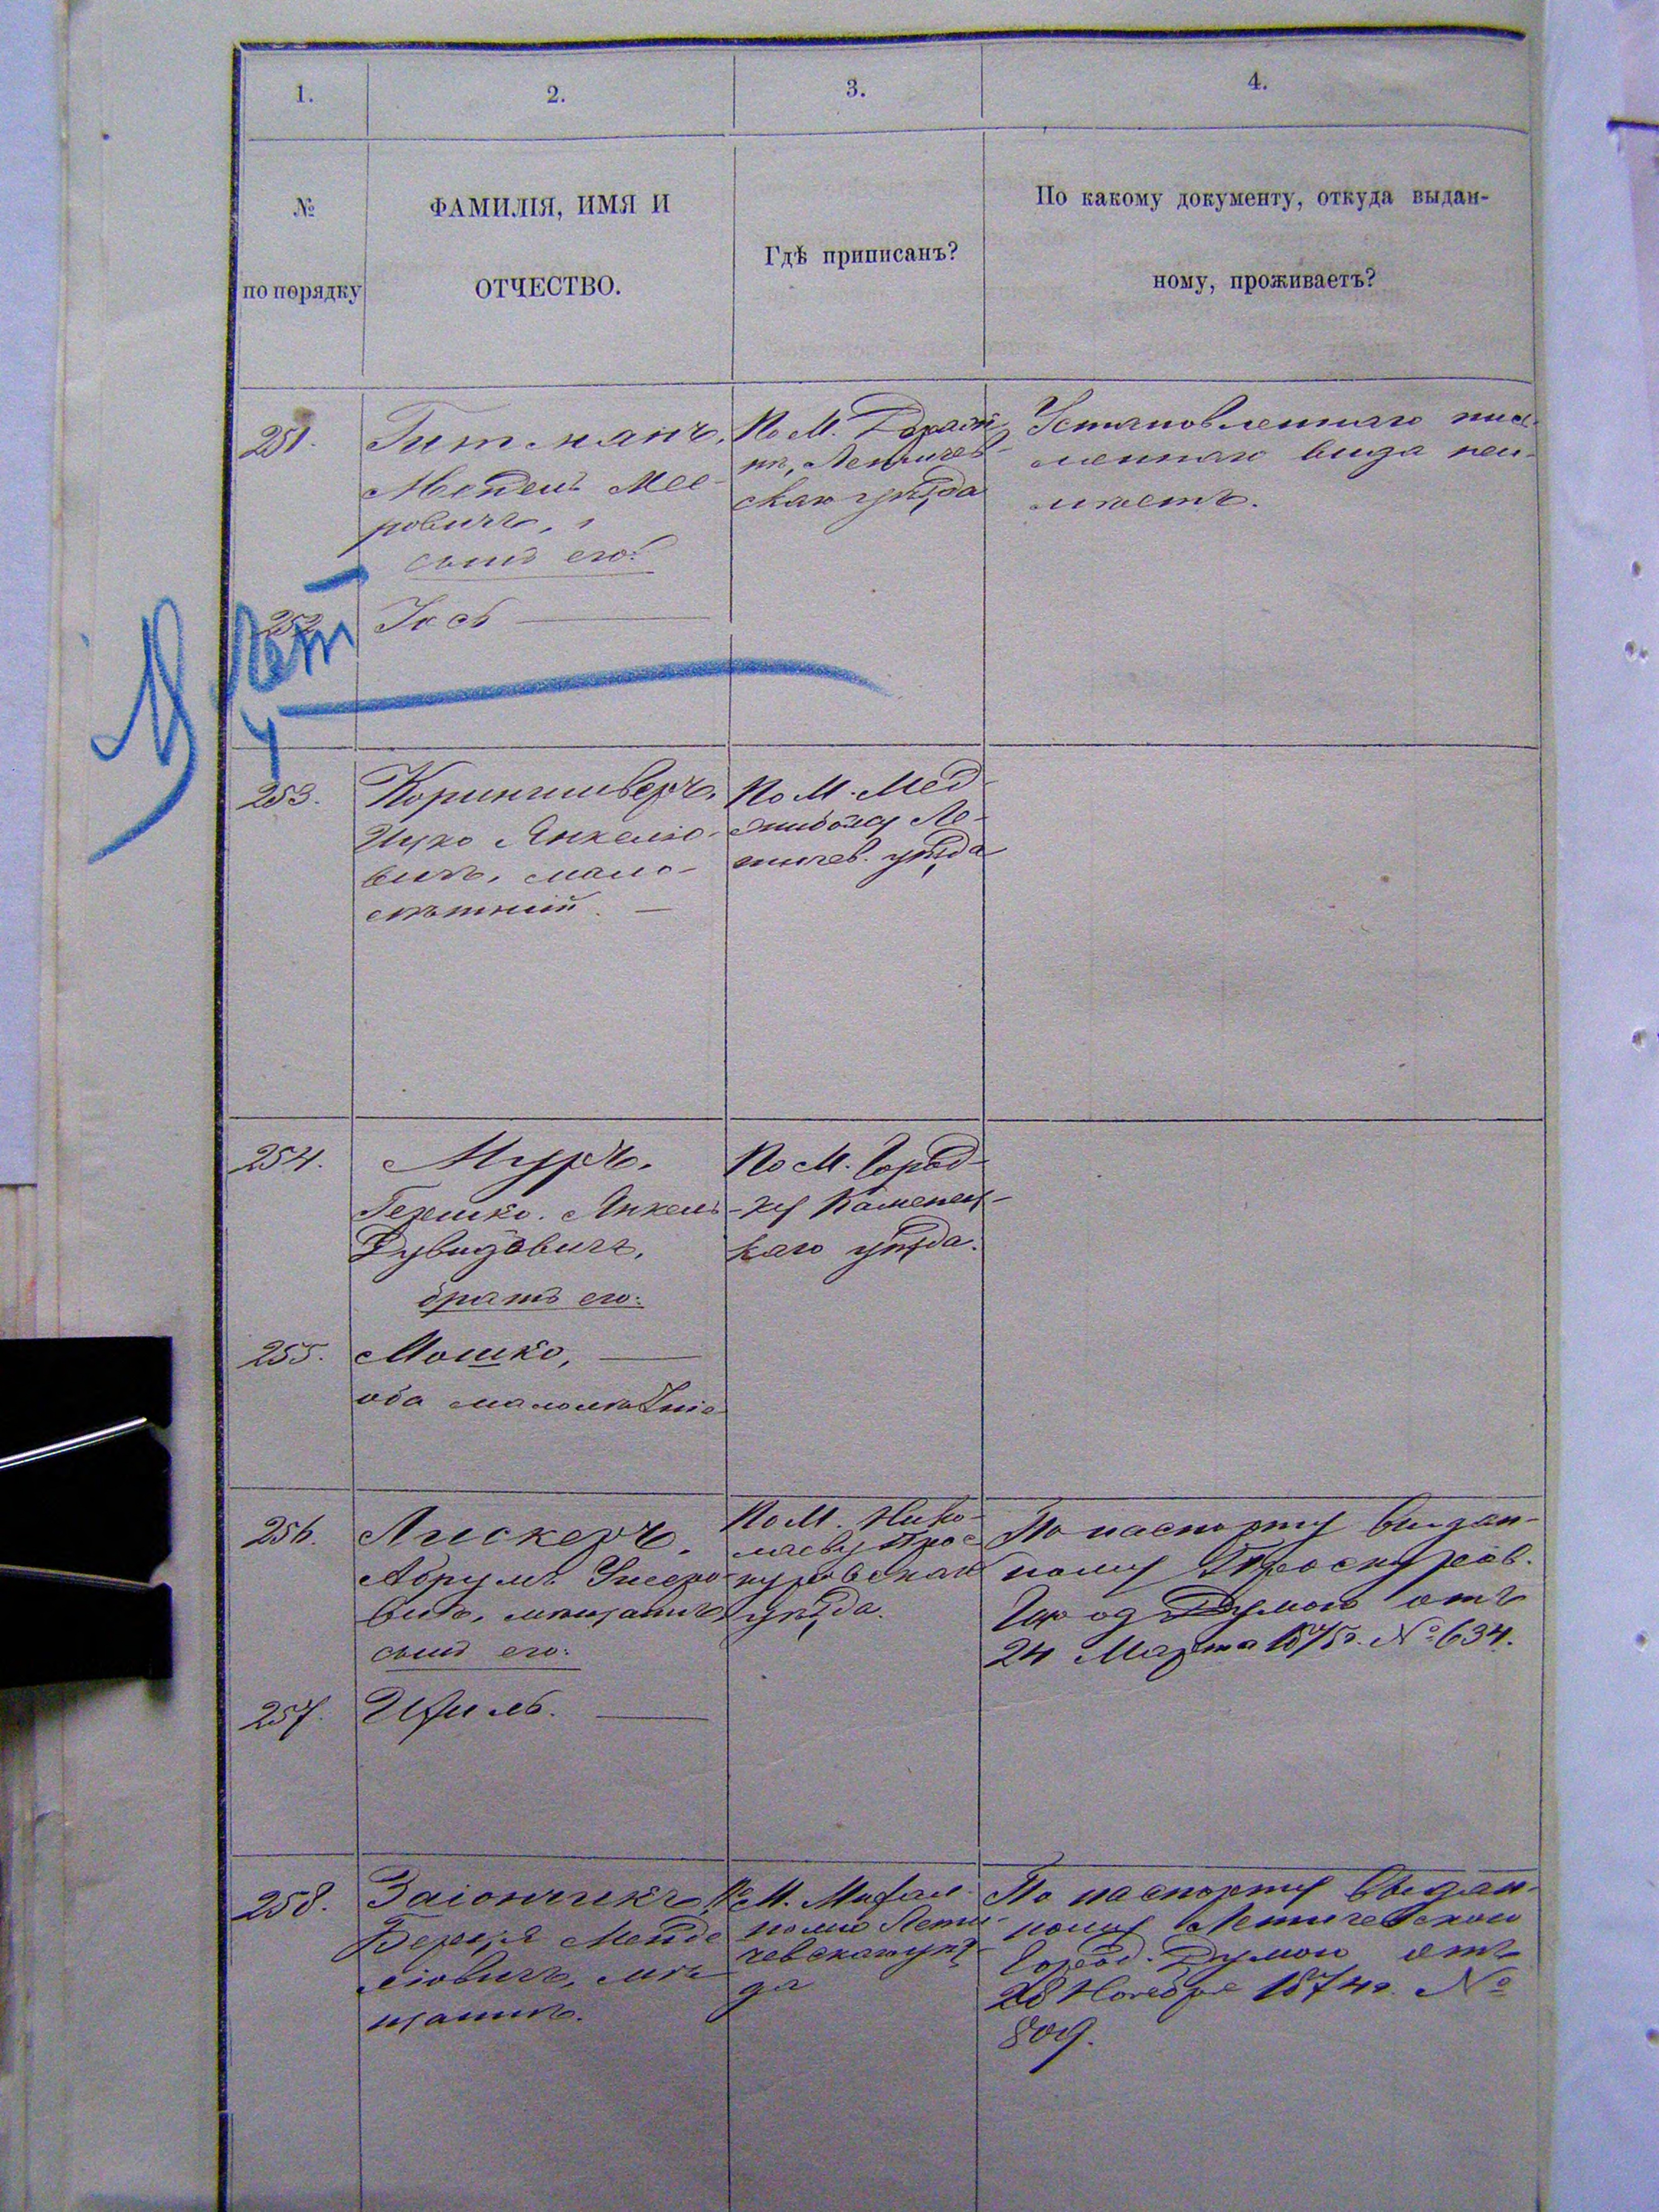 1.
2.
3.
4.
№
по порядку
ФАМИЛІЯ, ИМЯ И
ОТЧЕСТВО.
Гдѣ приписанъ?
По какому документу, откуда выдан-
ному, проживаетъ?
251.
Гитманъ,
Мендель Мее-
ровичъ,
сынъ его:
По М. Дераж
нѣ, Летичев-
скаго уѣзда
Установленнаго пись-
меннаго вида неи-
мѣетъ.
252
Іось
253.
Ицко Янкелю-
вичъ, мало-
лѣтній. —
По М. Мед-
жибожу Ле-
тичев. уѣзда
254.
Муръ,
Гершко. Янкель
Дувидовичъ,
братъ его:
По М. Город-
ку Каменец-
каго уѣзда.
255.
Мошко,
оба малолѣтніе
256.
Лискеръ,
Абрумъ
вичъ, мѣщанинъ,
сынъ его:
По М. Нико-
лаеву Прос-
куровскаго
уѣзда.
По паспорту выдан-
ному Проскуров.
Думою отъ
24 Марта 1875г. № 634.
257.
258.
Заіончикъ,
Берця Менде
лювичъ, мѣ-
щанинъ.
По М. Михал
полю Лети-
чевскаго уѣз-
да
По паспорту выдан-
ному Летичевскою
Город. Думою отъ
28 Ноября 1874г. №
809.